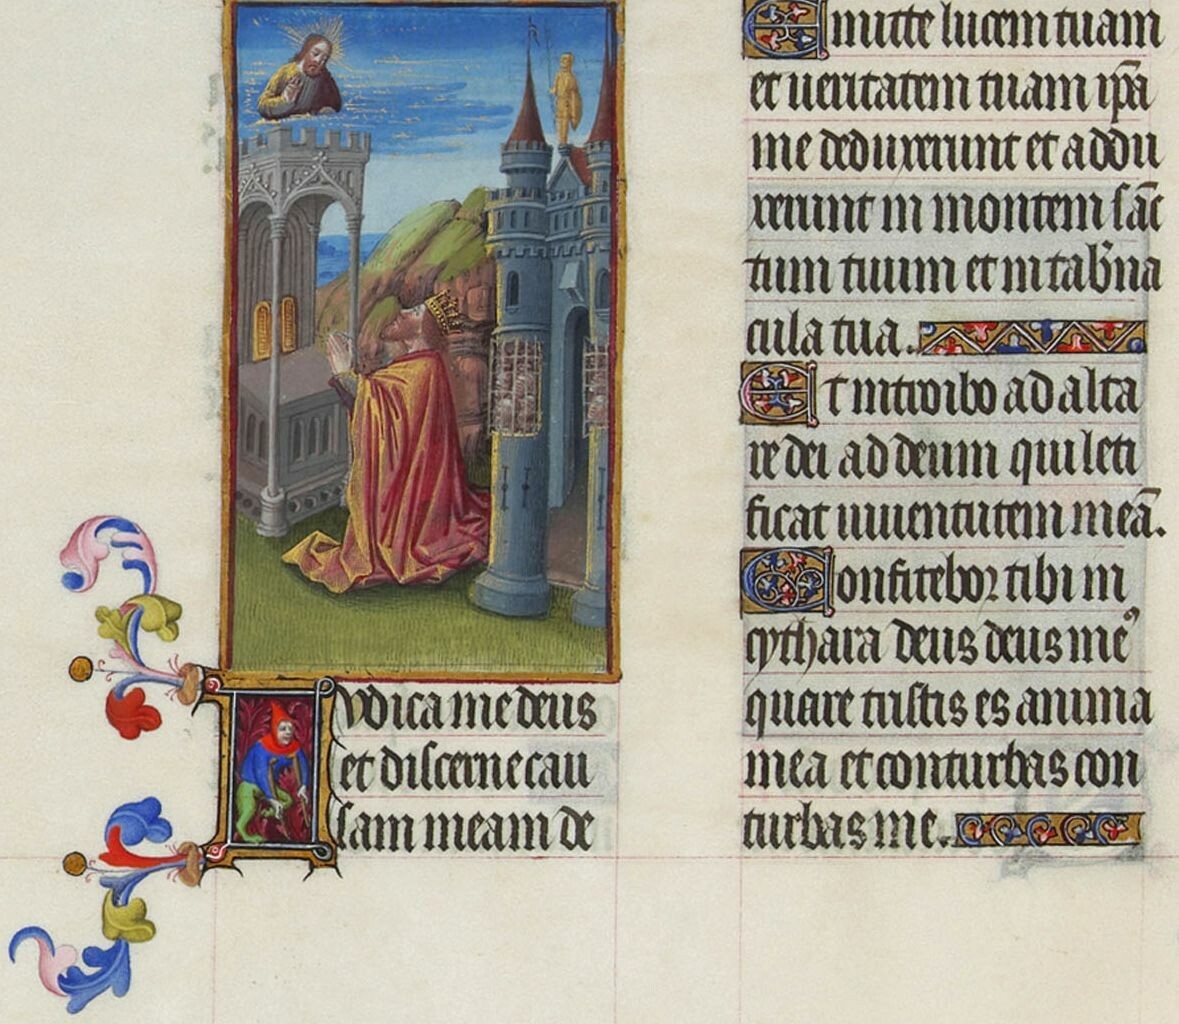 Iudica me deus
et discerne cau
sam meam de
Emitte lucem tuam
et ueritatem tuam ip̄a
me deduxerunt et addu
xerunt in montem sāc
tum tuum et in tab̉na
cula tua.
Et introibo ad alta
re dei ad deum qui leti
ficat iuuentutem meā.
Confitebor tibi in
cythara deus deus meꝰ
quare tristis es anima
mea et conturbas con
turbas me.